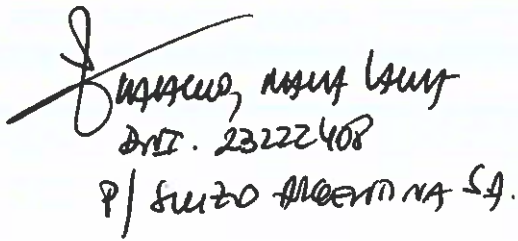 MARIA LAURA
DNI. 23222408
P/ SUIZO ARGENTINA SA.